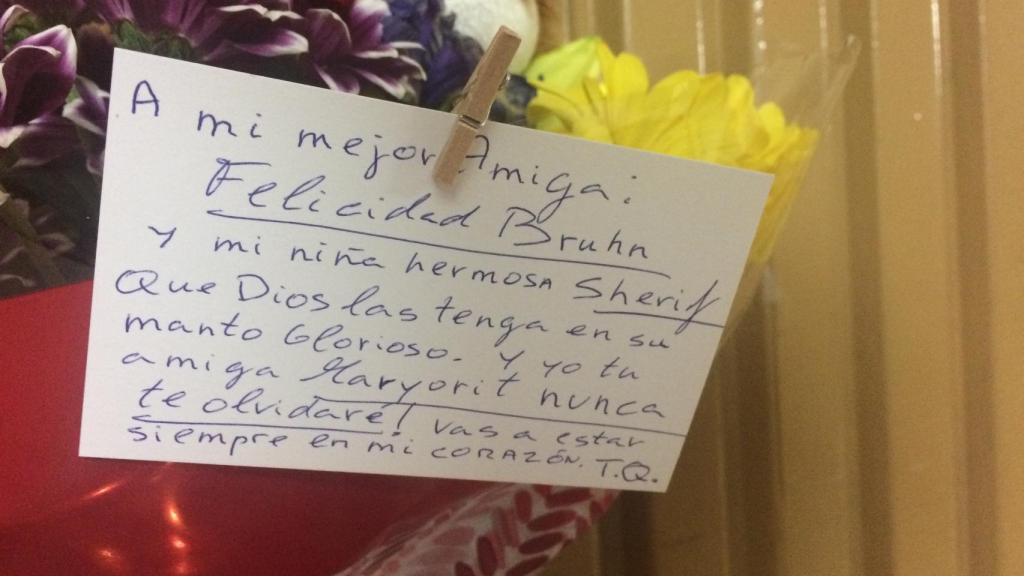 A mi mejor Amiga:
Felicidad Bruhn
Y mi niña hermosa Sherif
Que Dios las tenga en su
manto Glorioso. Y yo tu
amiga Maryorit nunca
te olvidaré! vas a estar
siempre en mi CORAZÓN. T.Q.